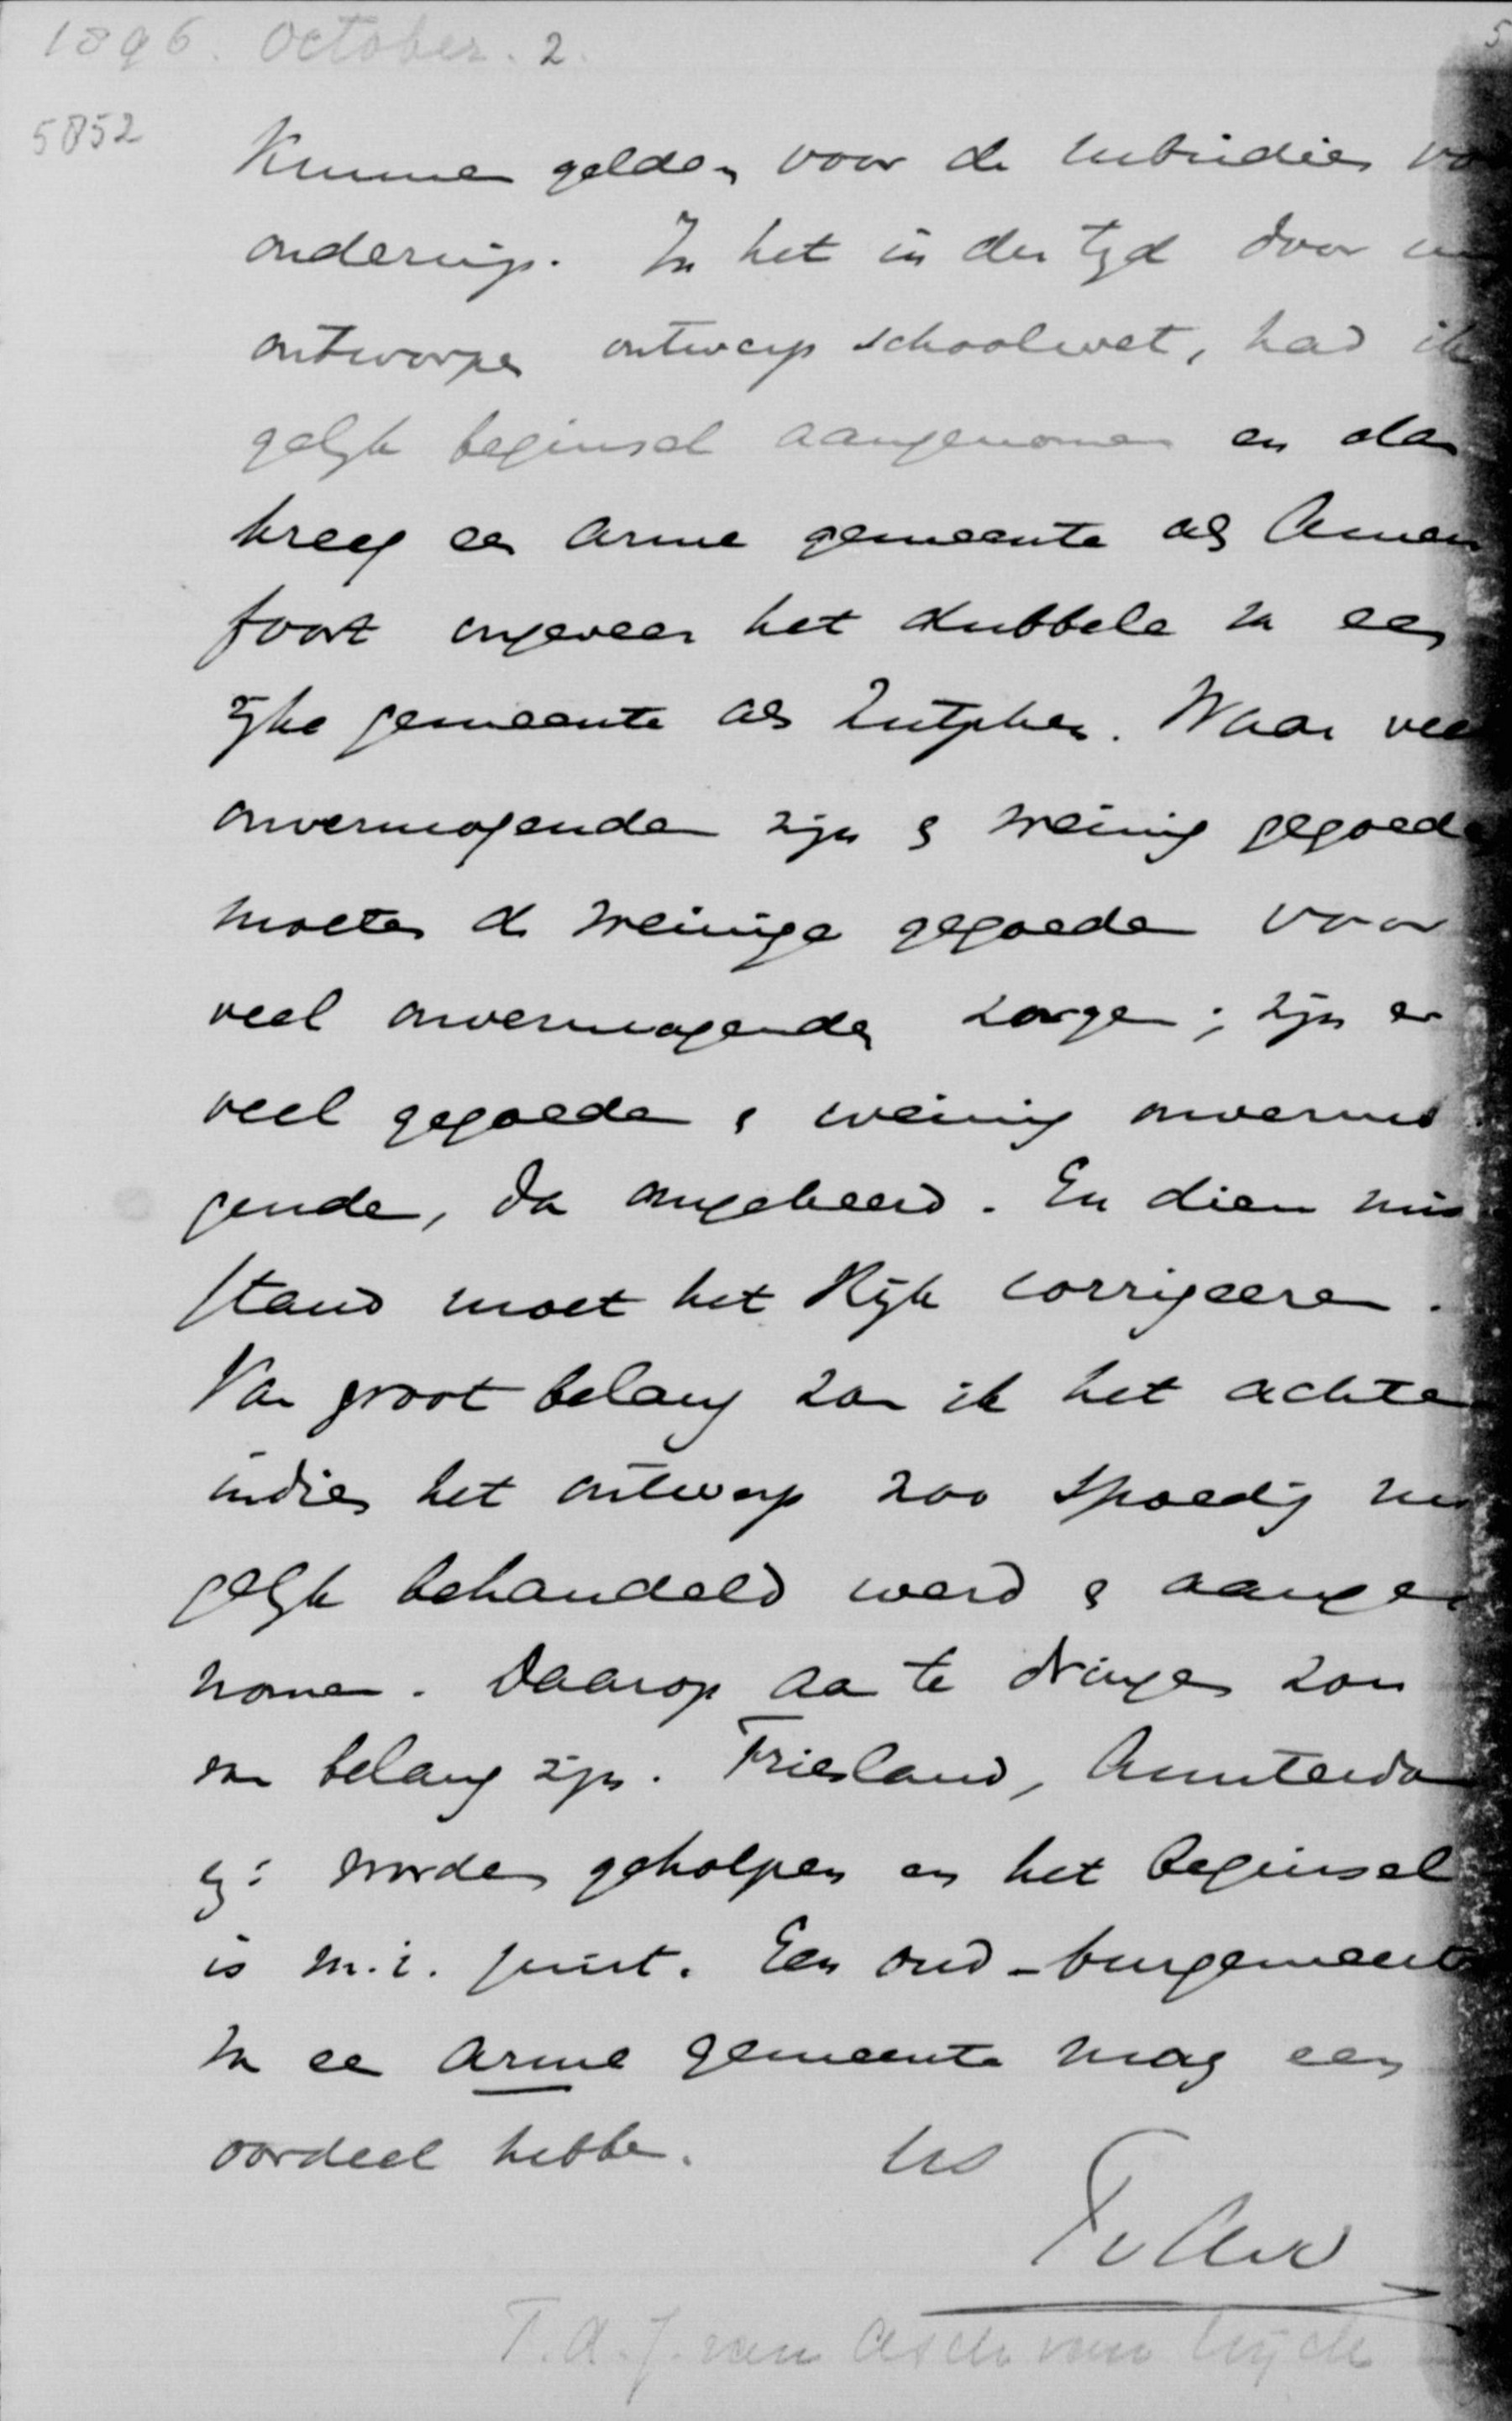 1896. October. 2.
5852
Kunnen gelden voor de subsidies
onderwijs. In het in der tijd door
ontworpen ontwerp schoolwet, had ik
gelijk beginsel aangenomen en dan
kreeg een arme gemeente als Amers
foort ongeveer het dubbele van een
rijke gemeente als Zutphen. Waar veel
onvermogenden zijn & weinig gegoeden
moeten de weinige gegoeden voor
veel onvermogenden zorgen; zijn er
veel gegoeden & weinig onvermo
genden, dan omgekeerd. En dien mis
stand moet het Rijk corrigeeren.
Van groot belang zou ik het achten
indien het ontwerp zoo spoedig mo
gelijk behandeld werd & aange
nomen. Daarop aan te dringen zou
van belang zijn. Friesland, Amsterdam
worden geholpen en het beginsel
is m.i. juist. Een oud-burgemeester
van een arme gemeente mag een
oordeel hebben. tt
TvAvW
T.A.J. van Asch van Wijck